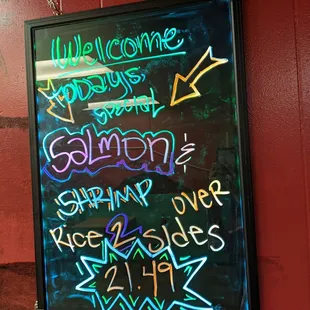 Welcome
TODAYS
special
SALMON &
SHRIMP over
Rice 2 sides
21.49